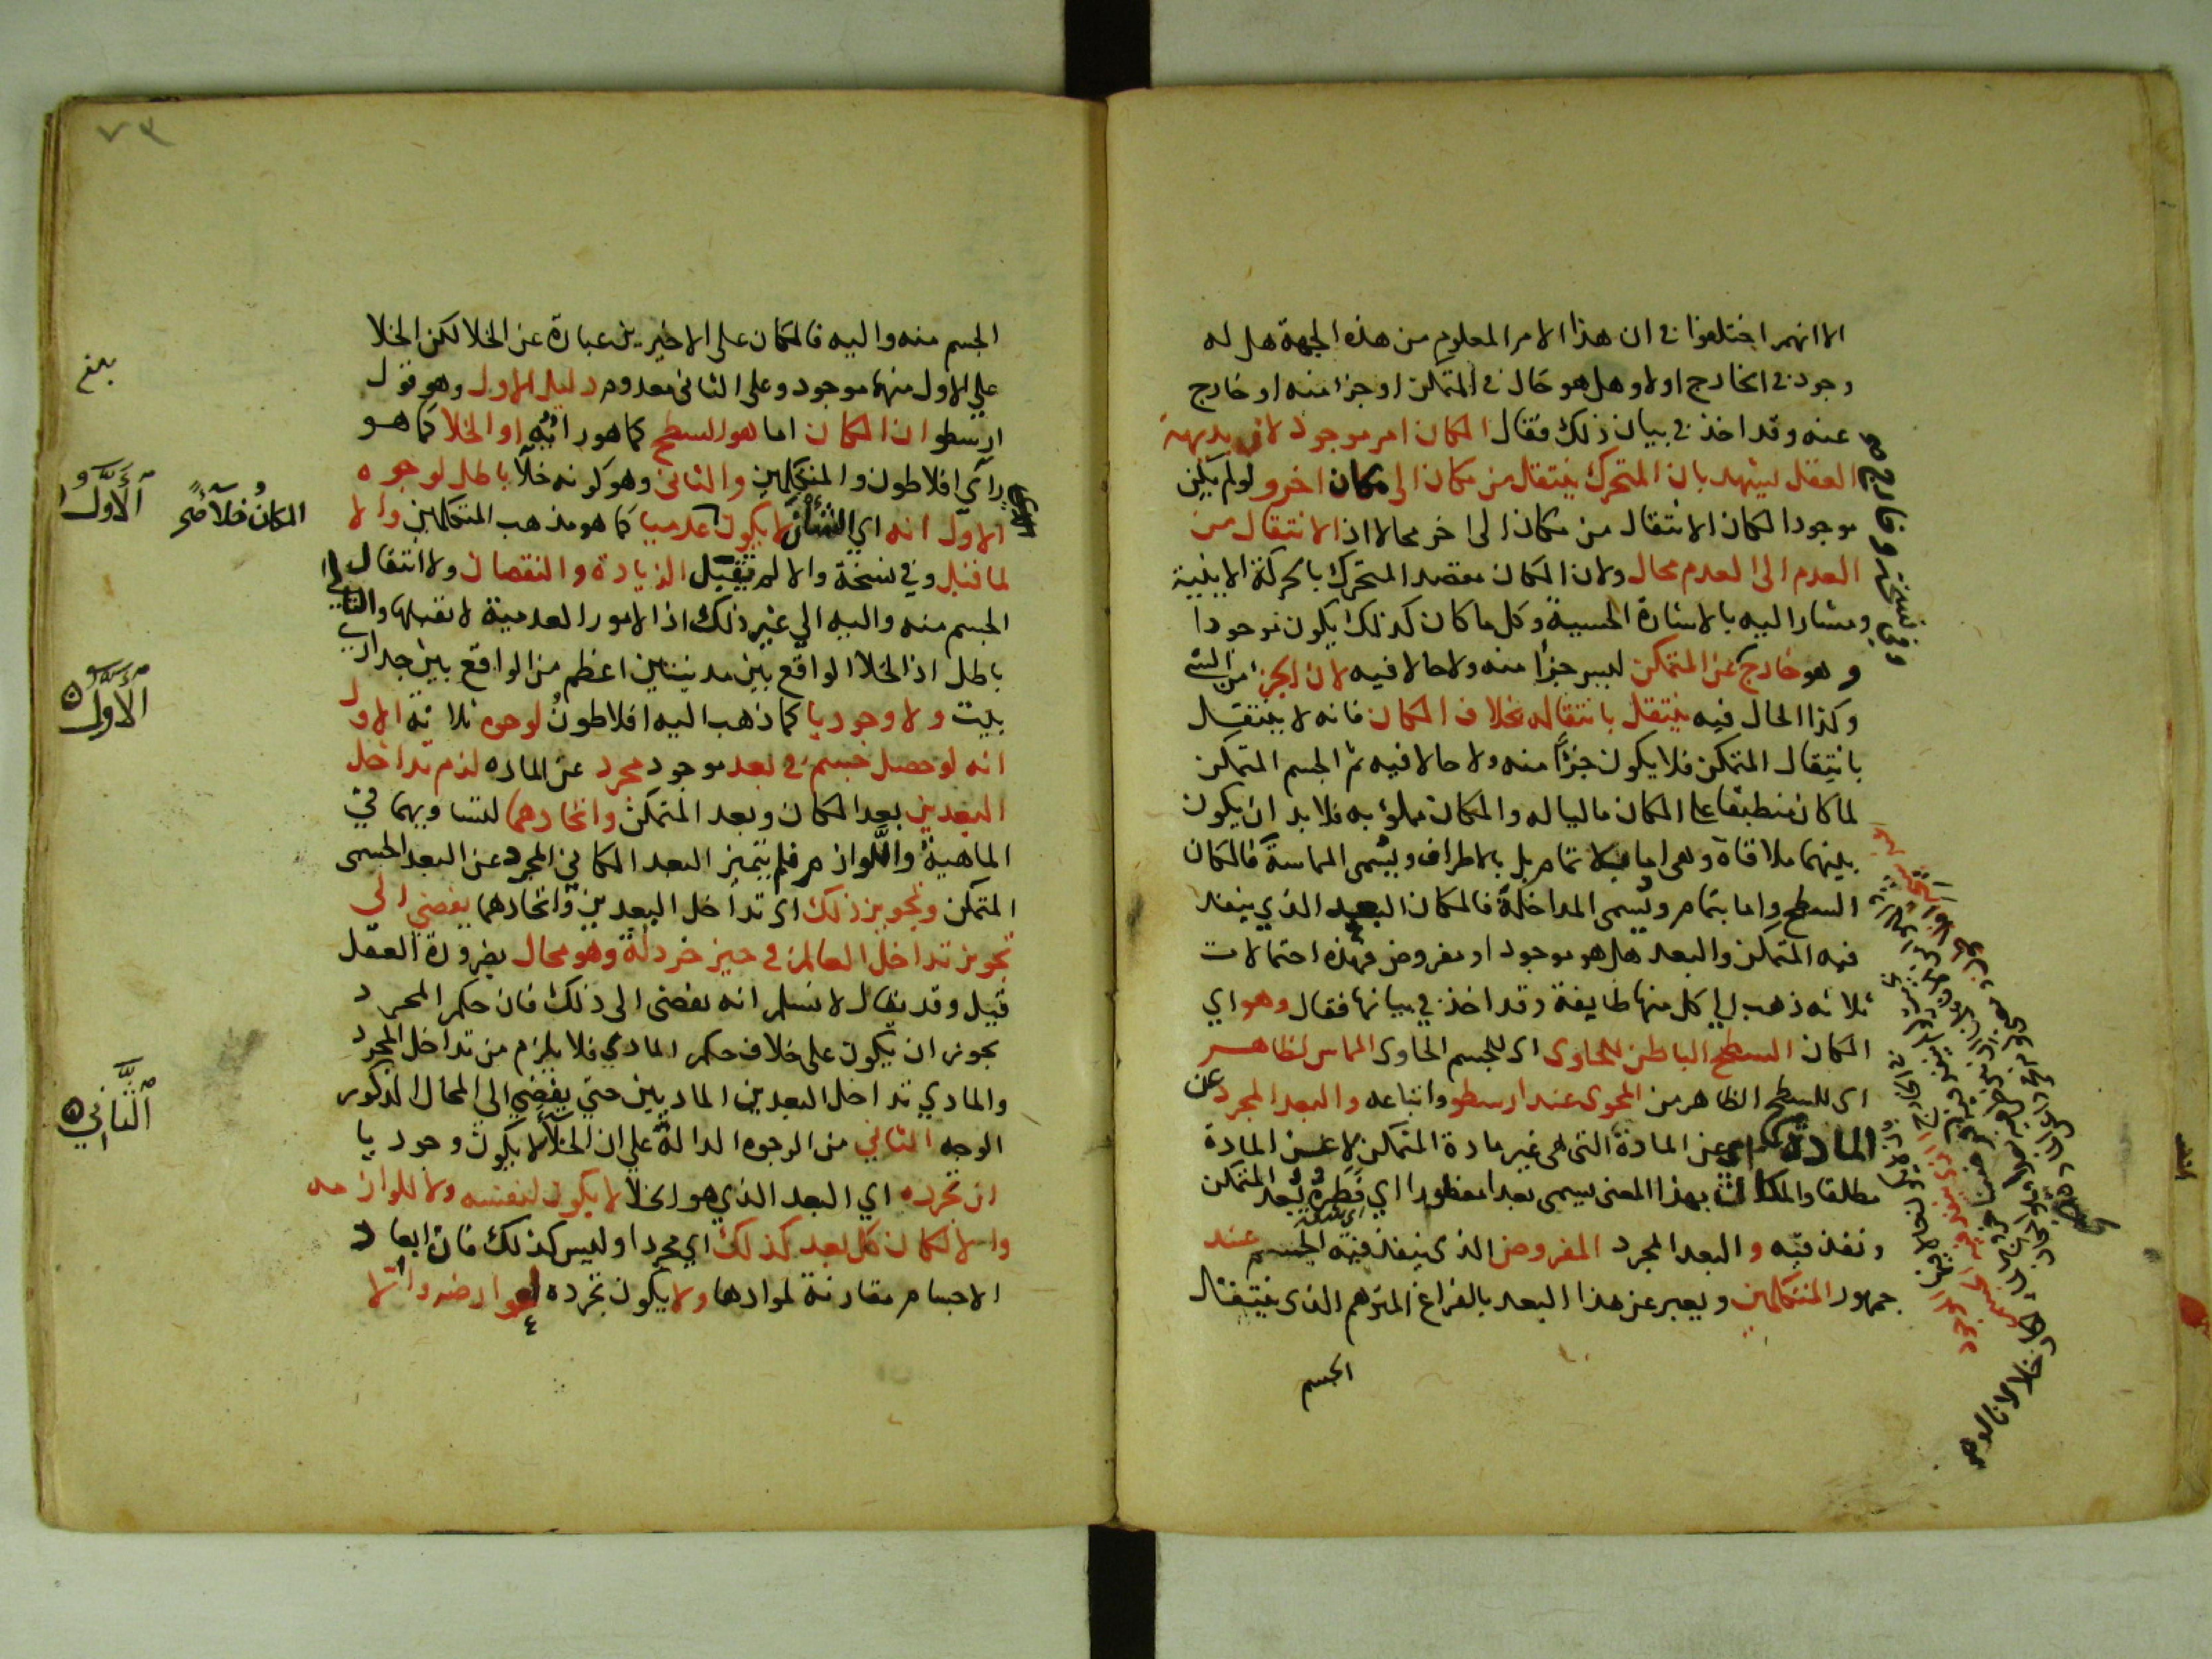 الا انهم اختلفوا في ان هذا الامر المعلوم من هذه الجهة هل له
وجود في الخارج اولا وهل هو حال في المتمكن او جزا منه او خارج
عنه وقد اخذ في بيان ذلك فقال المكان امر موجود لان بديهة
العقل يشهد بان المتحرك ينتقل من مكان الى مكان اخر ولو لم يكن
موجودا لكان الانتقال من مكان الى اخر محالا اذ الانتقال من
العدم الى العدم محال ولان المكان مقصد المتحرك بالحركة الاينية
ومشار اليه بالاشارة الحسية وكل ما كان كذلك يكون موجودا
وهو خارج عن المتمكن ليس جزأ منه ولا حالا فيه لان الجزا من الشي
وكذا الحال فيه ينتقل بانتقاله بخلاف المكان فانه لا ينتقل
بانتقال المتمكن فلا يكون جزأ منه ولا حالا فيه ثم الجسم المتمكن
لما كان منطبقا على المكان ماليا له والمكان مملؤ به فلا بد ان يكون
بينهما ملاقاة وهي اما لا بتمام بل بالاطراف ويسمى المماسة فالمكان
السطح واما بتمام ويسمى المداخلة فالمكان البعد الذي ينفذ
فيه المتمكن والبعد هل هو موجود او مفروض فهذه احتمالات
ثلاثه ذهب الى كل منها طايفة وقد اخذ في بيانها فقال وهو اي
المكان السطح الباطن للحاوى اى للجسم الحاوى المماس لظاهر
اى للسطح الظاهر من المحوى عند ارسطو واتباعه والبعد المجرد عن
المادة اى عن المادة التى هى غير مادة المتمكن لا عن المادة
مطلقا والمكان بهذا المعنى يسمى بعدا مفطورا اي فطره بعد المتمكن
ونفذ فيه والبعد المجرد المفروض الذى ينفذ فيه الجسم عند
جمهور المتكلمين ويعبر عن هذا البعد بالفراغ المتوهم الذى ينتقال
الجسم
وفي نسخة وخارج
الجسم منه واليه فالمكان على الاخيرين عبارة عن الخلا لكن الخلا
على الاول منهما موجود وعلى الثانى معدوم دليل الاول وهو قول
ارسطو ان المكان اما هو السطح كما هو رايه او الخلا كما هو
رآي افلاطون والمتكلمين والثانى وهو كونه خلآ باطل لوجوه
الاول انه اي الشان لا يكون عدميا كما هو مذهب المتكلمين والا
لما قبل وفي نسخة والا لم يقبل الزيادة والنقصان ولا انتقال
الجسم منه واليه الى غير ذلك اذ الامور العدمية لا تقبلها والتالى
باطل اذ الخلا الواقع بين مدينتين اعظم من الواقع بين جداري
بيت ولا وجوديا كما ذهب اليه افلاطون لوجوه ثلاثة الاول
انه لو حصل جسم في بعد موجود مجرد عن الماده لزم تداخل
البعدين بعد المكان وبعد المتمكن واتحادهما لتساويهما في
الماهية واللوازم فلم يتميز البعد المكاني المجرد عن البعد الجسمى
المتمكن وتجويز ذلك اى تداخل البعدين واتحادهما يفضى الى
تجويز تداخل العالم في حيز خردلة وهو محال بضرورة العقل
قيل وقد يقال لا نسلم انه يفضى الى ذلك فان حكم المجرد
يجوز ان يكون على خلاف حكم المادي فلا يلزم من تداخل المجرد
والمادي تداخل البعدين الماديين حتى يفضي الى المحال المذكور
الوجه الثاني من الوجوه الدالة على ان الخلأ لا يكون وجوديا
ان تجرده اي البعد الذي هو الخلا لا يكون لنفسه ولا للوازمه
والا لكان كل بعد كذلك اي مجردا وليس كذلك فان ابعاد
الاجسام مقارنة لموادها ولا يكون تجرده لعوارضه والا
بلغ
المكان خلآ صح
الأول
الأول
الثاني
٧٣